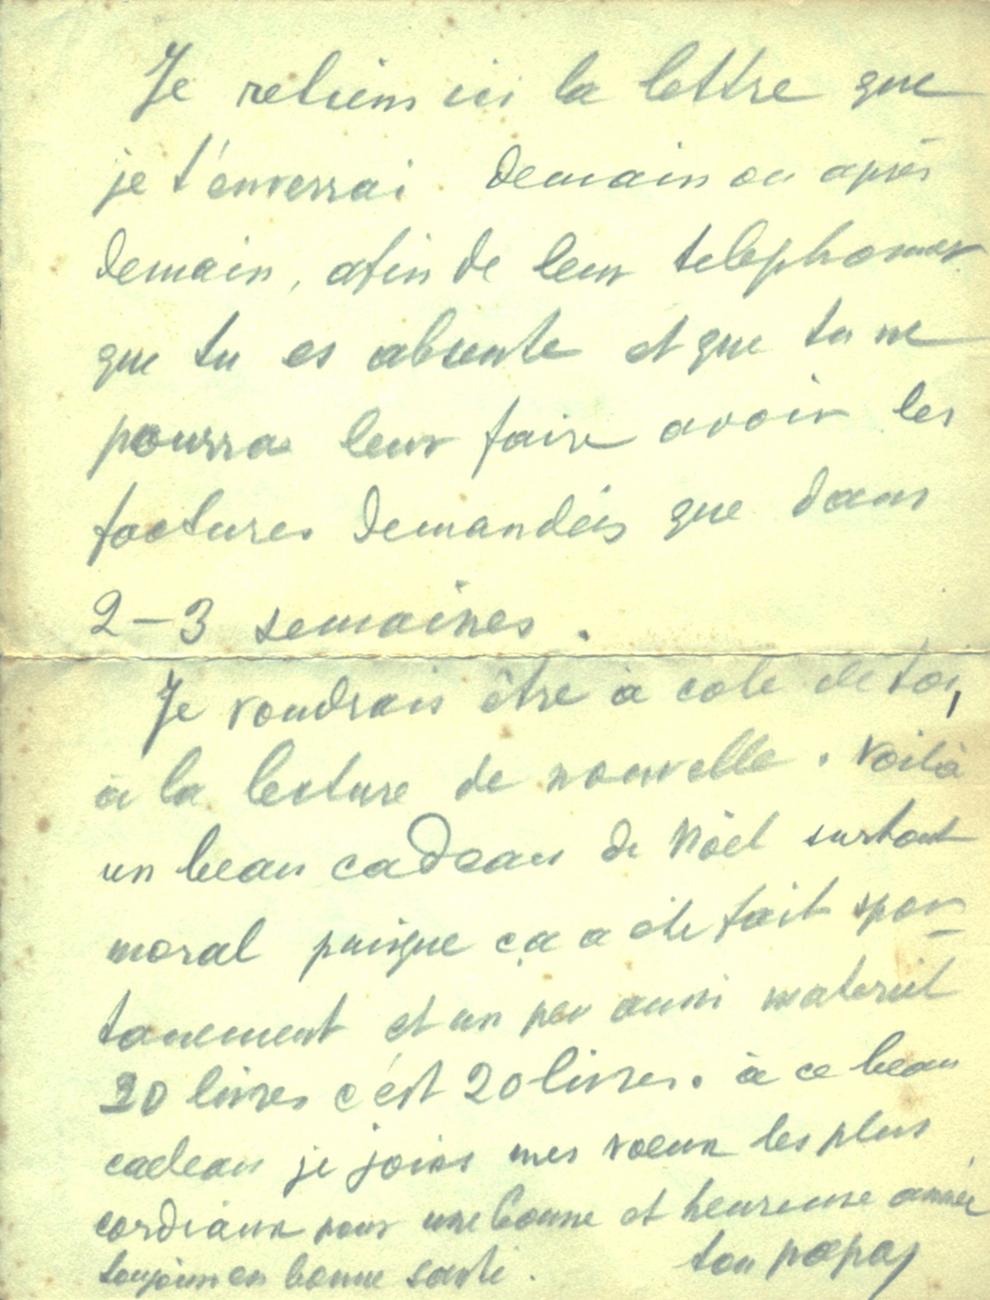 Je retiens ici la lettre que
je t'enverrai demain ou après
demain, afin de leur telephoner
que tu es absente et que tu ne
pourra leur faire avoir les
factures demandées que dans
2-3 semaines.
Je voudrais être à cote de toi,
à la lecture de nouvelle. Voilà
un beau cadeau de Nöel surtout
moral puisque ça a été fait spon-
tanement et un peu aussi materiel
20 livres c'est 20 livres. à ce beau
cadeau je joins mes voeux les plus
cordiaux pour une bonne et heureuse année
toujours en bonne santé. ton papa